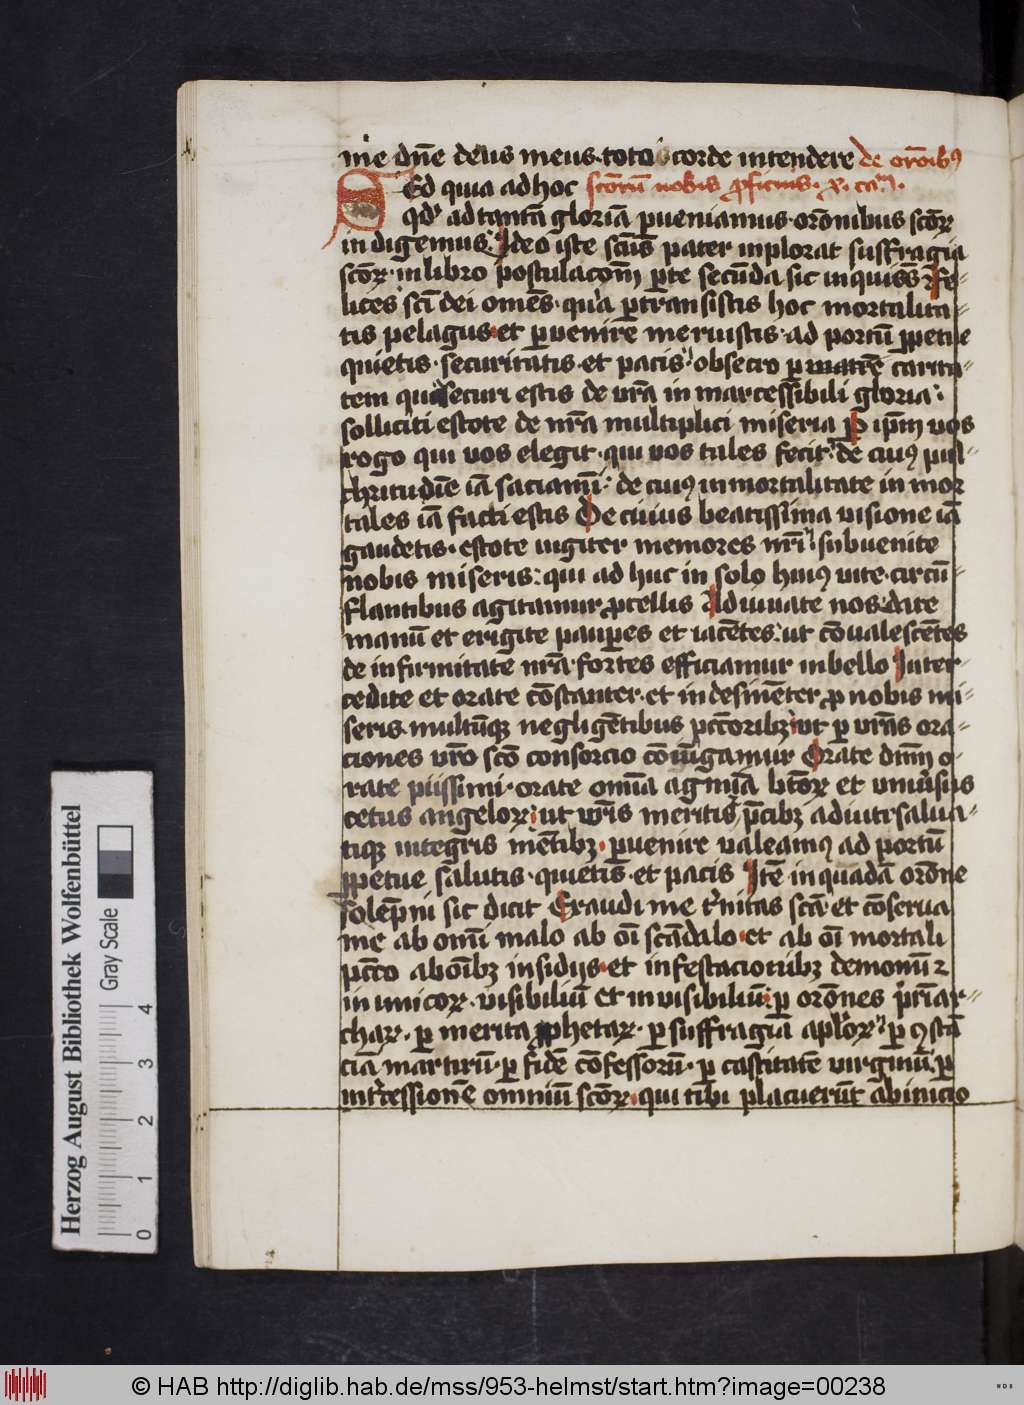 me dn̄e deus meus toto corde intendere de or̄oībꝯ
Sed quia ad hoc sc̄orū nobis ꝓficuis. x. ca.
qd ad tantā gloriā ꝑueniamus or̄onibus sc̄oꝝ
indigemus Ideo iste sc̄us pater inplorat suffragia
sc̄oꝝ in libro postulacōm ꝑte secūda sic inquiēs O fe-
lices sc̄i dei om̄es quia ꝑtransistis hoc mortalita-
tis pelagus et ꝑuenire meruistis ad portū ꝑpetue
quietis securitatis et pacis obsecro ꝑ matrē carita-
tem qui securi estis de vr̄a in marcessibili gloria
solliciti estote de nr̄a multiplici miseria ꝑ ip̄m vos
rogo qui vos elegit qui vos tales fecit de cuiꝯ pul-
chritudīe iā saciamī de cuiꝯ inmortalitate inmor
tales iā facti estis De cuius beatissima visione iā
gaudetis estote iugiter memores nr̄i subuenite
nobis miseris qui ad huc in solo huiꝯ vite circū-
flantibus agitamur ꝓcellis Adiuuate nos date
manū et erigite pauꝑes et iacētes ut cōualescētes
de infirmitate nr̄a fortes efficiamur in bello Inter-
cedite et orate cōstanter et indesinēter ꝓ nobis mi-
seris multūqꝫ negligētibus pc̄toribꝫ ut ꝑ vr̄as ora-
ciones vr̄o sc̄o consorcio cōiūgamur Orate dn̄m o-
rate piissimi orate om̄ia agmīa bt̄oꝝ et vniūsus
cetus angeloꝝ ut vr̄is meritis p̄cibꝫ adiuti salua-
tiqꝫ integris mētibꝫ ꝑuenire valeamꝯ ad portū
ꝑpetue salutis quietis et pacis Itē in quadā or̄one
solēpni sic dicit Exaudi me t̄nitas sc̄a et cōserua
me ab om̄i malo ab oī scādalo et ab oī mortali
pc̄to ab oībꝫ insidijs et infestacionibꝫ demonū ⁊
inimicoꝝ visibiliū et invisibiliū ꝑ or̄ones pr̄iar-
chaꝝ ꝑ merita ꝓphetaꝝ ꝑ suffragiā apl̄oꝝ ꝑ ꝯstā
ciā martirū ꝑ fidē cōfessorū ꝑ castitatē virginū ꝑ
int̄cessionē omniū sc̄oꝝ qui tibi placuerūt ab inicio
Herzog August Bibliothek Wolfenbüttel
Gray Scale
0 1 2 3 4
© HAB http://diglib.hab.de/mss/953-helmst/start.htm?image=00238